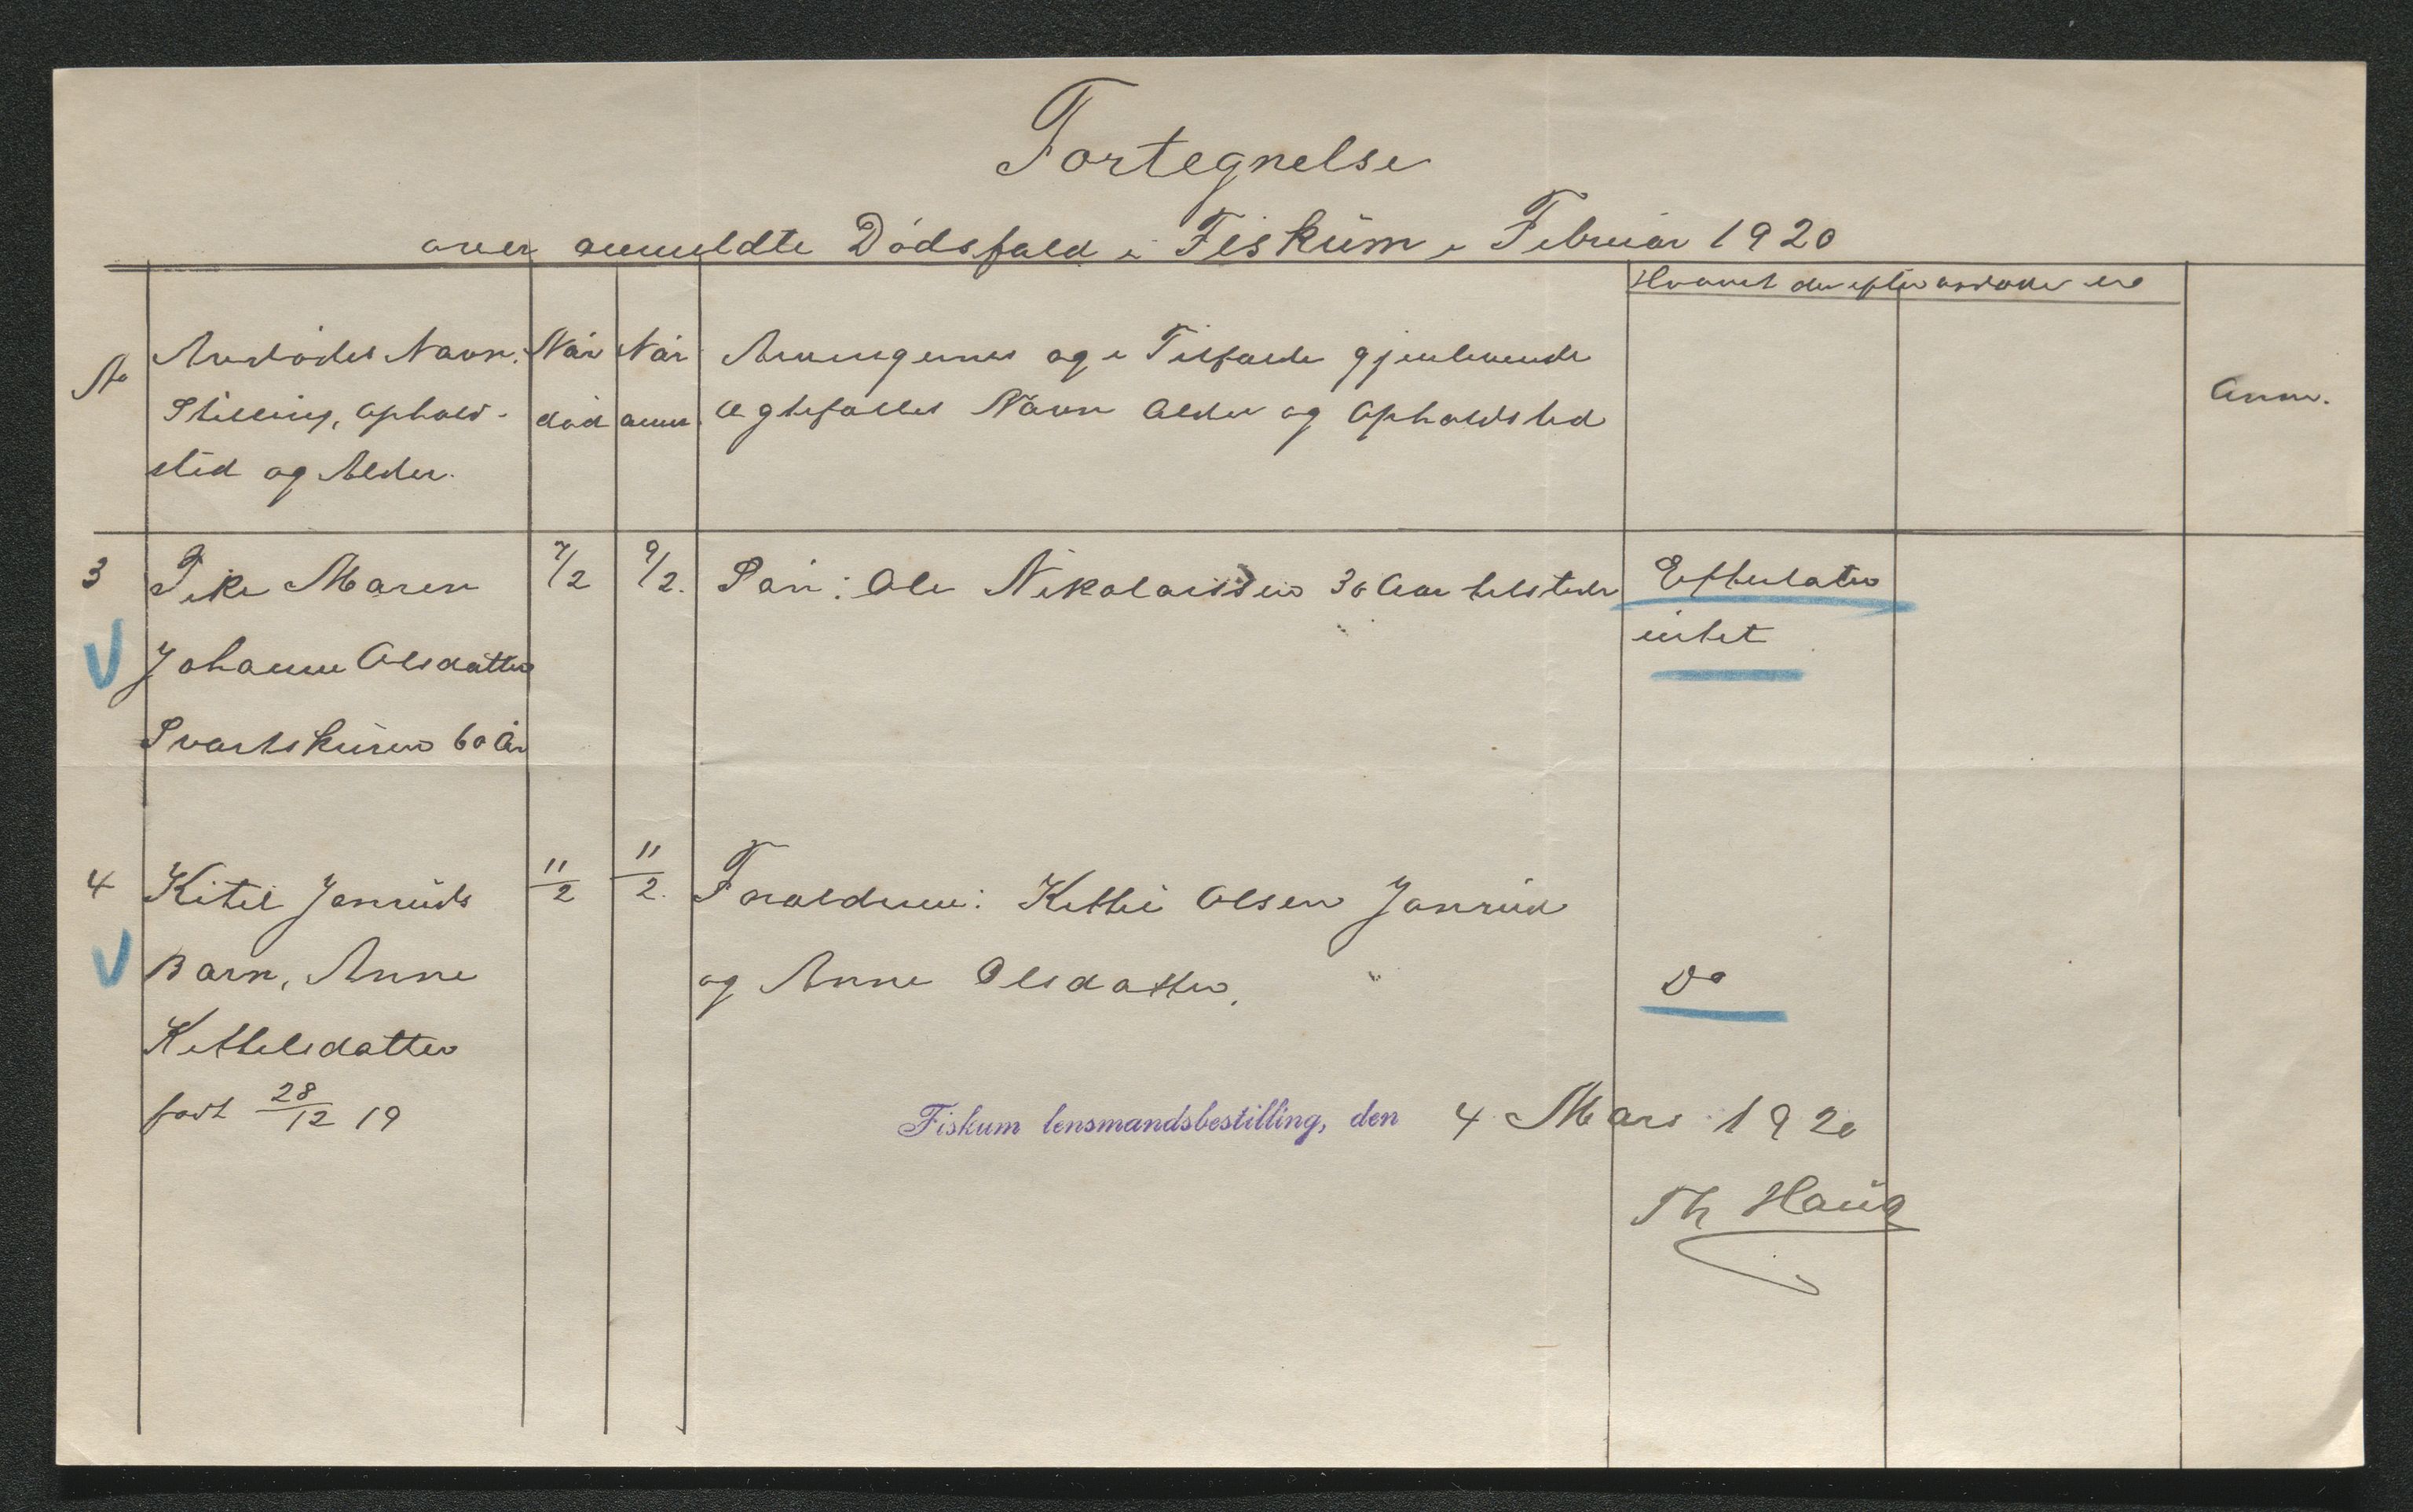 Fortegnelse
over anmeldte Dødsfald i Fiskum i Februar 1920
No
Avdødes Navn,
Stilling, Ophold-
sted og Alder.
Når
død
Når
anm.
Arvingernes og i Tilfælde gjenlevende
Ægtefælles Navn Alder og Opholdsted
Hvorvidt der efter avdøde er
Anm.
3
Pike Maren
Johanne Olsdatter
Svartskuren 60 År
7/2
9/2.
Søn: Ole Nikolaissen 30 Aar tilstede
Efterlater
intet
4
Kitil Jonruds
Barn, Anne
Kettelsdatter
født 28/12 19
11/2
11/2.
Foraldrene: Kittil Olsen Jonrud
og Anne Olsdatter.
Do
Fiskum lensmandsbestilling, den 4 Mars 1920
Th Haug